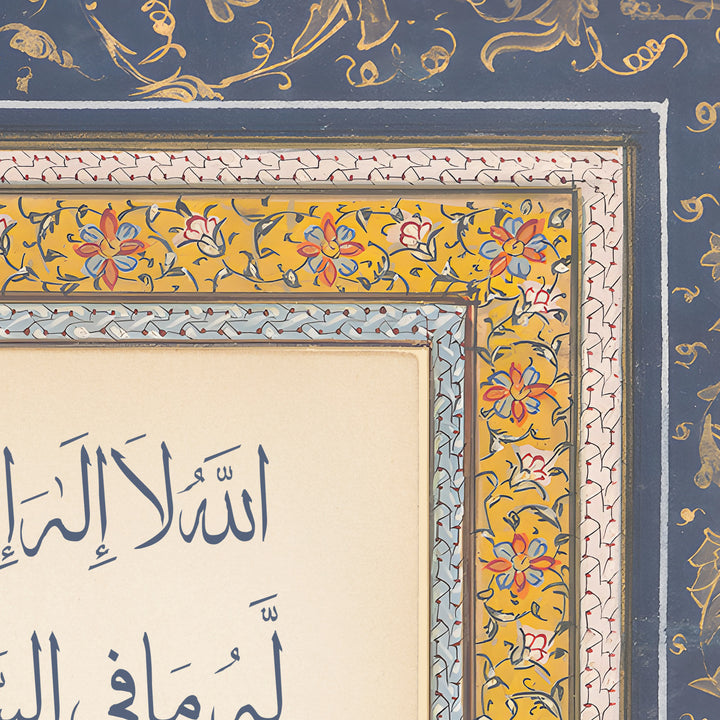 اللَّهُ لَا إِلَٰهَ إِ
لَّهُ مَا في السَّ